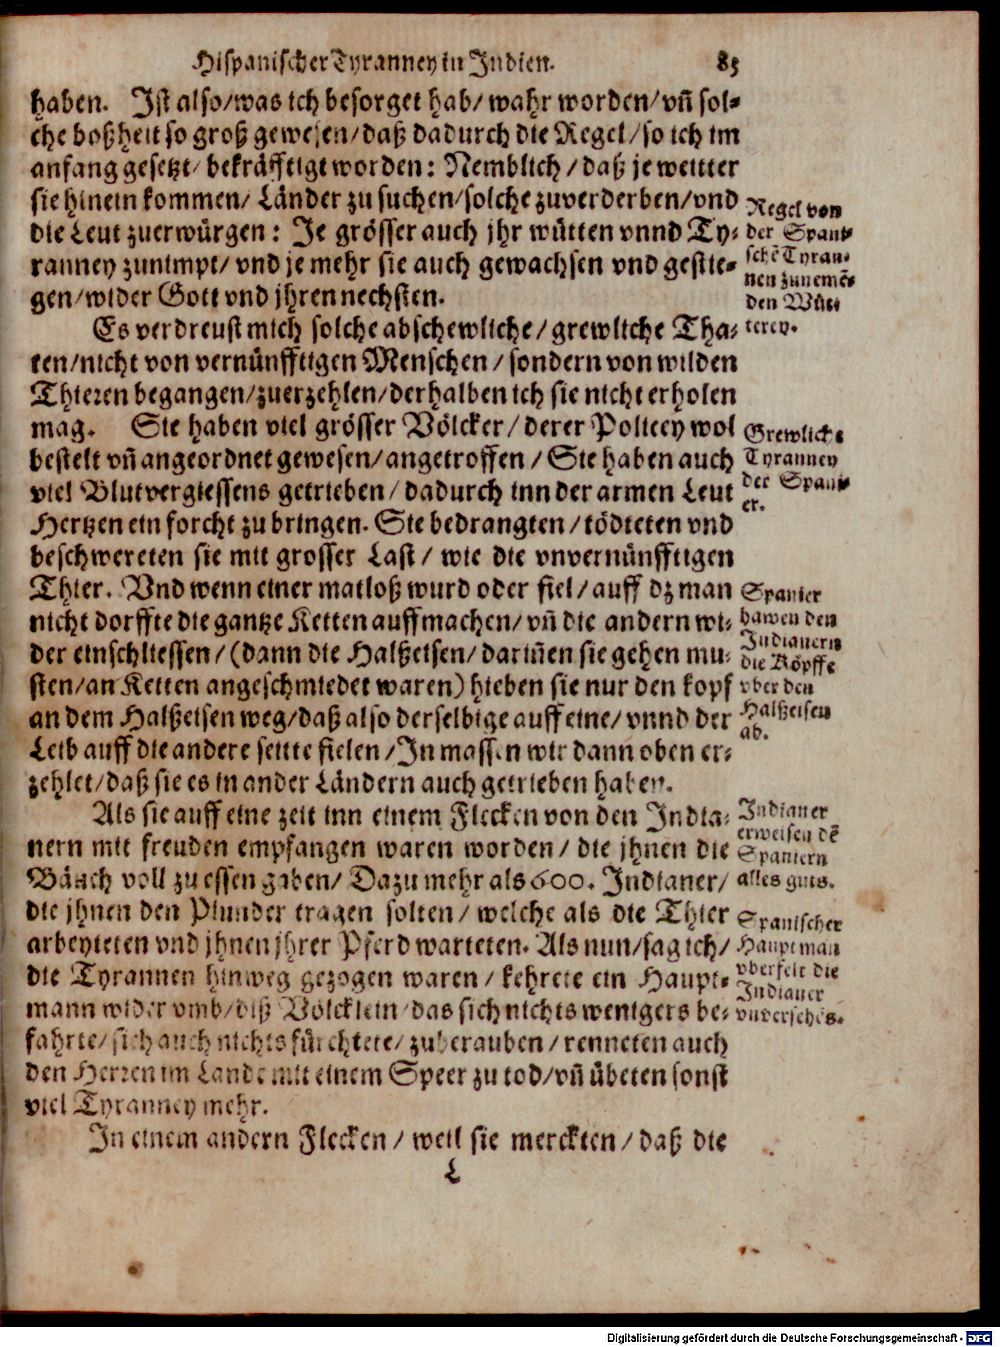 Hispanischer Tyranney in Indien. 85
haben. Ist also/was ich besorget hab/ wahr worden/ vn̄ sol⸗
che boßheit so groß gewesen/daß dadurch die Regel/ so ich im
anfang gesetzt/ bekräfftigt worden: Nemblich / daß je weitter
sie hinein kommen/ Länder zu suchen/solche zuverderben/vnd
die Leut zuerwürgen: Je grösser auch jhr wütten vnnd Ty⸗
ranney zunimpt/ vnd je mehr sie auch gewachsen vnd gestie⸗
gen/wider Gott vnd jhren nechsten.
Regel von
der Spani⸗
schē Tyran⸗
nen zunemē⸗
den Wüt⸗
terey.
Es verdreust mich solche abschewliche/ grewliche Tha⸗
ten/nicht von vernünfftigen Menschen / sondern von wilden
Thieren begangen/zuerzehlen/derhalben ich sie nicht erholen
mag. Sie haben viel grösser Völcker/ derer Policey wol
bestelt vn̄ angeordnet gewesen/angetroffen / Sie haben auch
viel Blutvergiessens getrieben/ dadurch inn der armen Leut
Hertzen ein forcht zu bringen. Sie bedrangten / tödteten vnd
beschwereten sie mit grosser Last/ wie die vnvernünfftigen
Thier. Vnd wenn einer matloß wurd oder fiel/ auff dz man
nicht dorffte die gantze Ketten auffmachen/ vn̄ die andern wi⸗
der einschliessen/ (dann die Halßeisen/ dariñen sie gehen mu⸗
sten/an Ketten angeschmiedet waren) hieben sie nur den kopf
an dem Halßeisen weg/daß also derselbige auff eine/ vnnd der
Leib auff die andere seitte fielen /In massen wir dann oben er⸗
zehlet/daß sie es in ander Ländern auch getrieben haben.
Grewliche
Tyranney
der Spani⸗
er.
Spanier
hawen den
Indianern
die Köpffe
vber den
Halßeisen
ab.
Als sie auff eine zeit inn einem Flecken von den India⸗
nern mit freuden empfangen waren worden/ die jhnen die
Bäuch voll zu essen gaben/ Dazu mehr als 600. Indianer/
die jhnen den Plunder tragen solten/ welche als die Thier
arbeyteten vnd jhnen jhrer Pferd warteten. Als nun/sag ich/
die Tyrannen hinweg gezogen waren / kehrete ein Haupt⸗
mann wider vmb/diß Völcklein/das sich nichts wenigers be⸗
fahrte/ sich auch nichts fürchtete/ zuberauben/ renneten auch
den Herren im Lande mit einem Speer zu tod/vn̄ übeten sonst
viel Tyranney mehr.
Indianer
erweisen dē
Spaniern
alles guts.
Spanischer
Hauptman
vberfelt die
Indianer
vnversehēs.
In einem andern Flecken / weil sie merckten / daß die
L
Digitalisierung gefördert durch die Deutsche Forschungsgemeinschaft - DFG